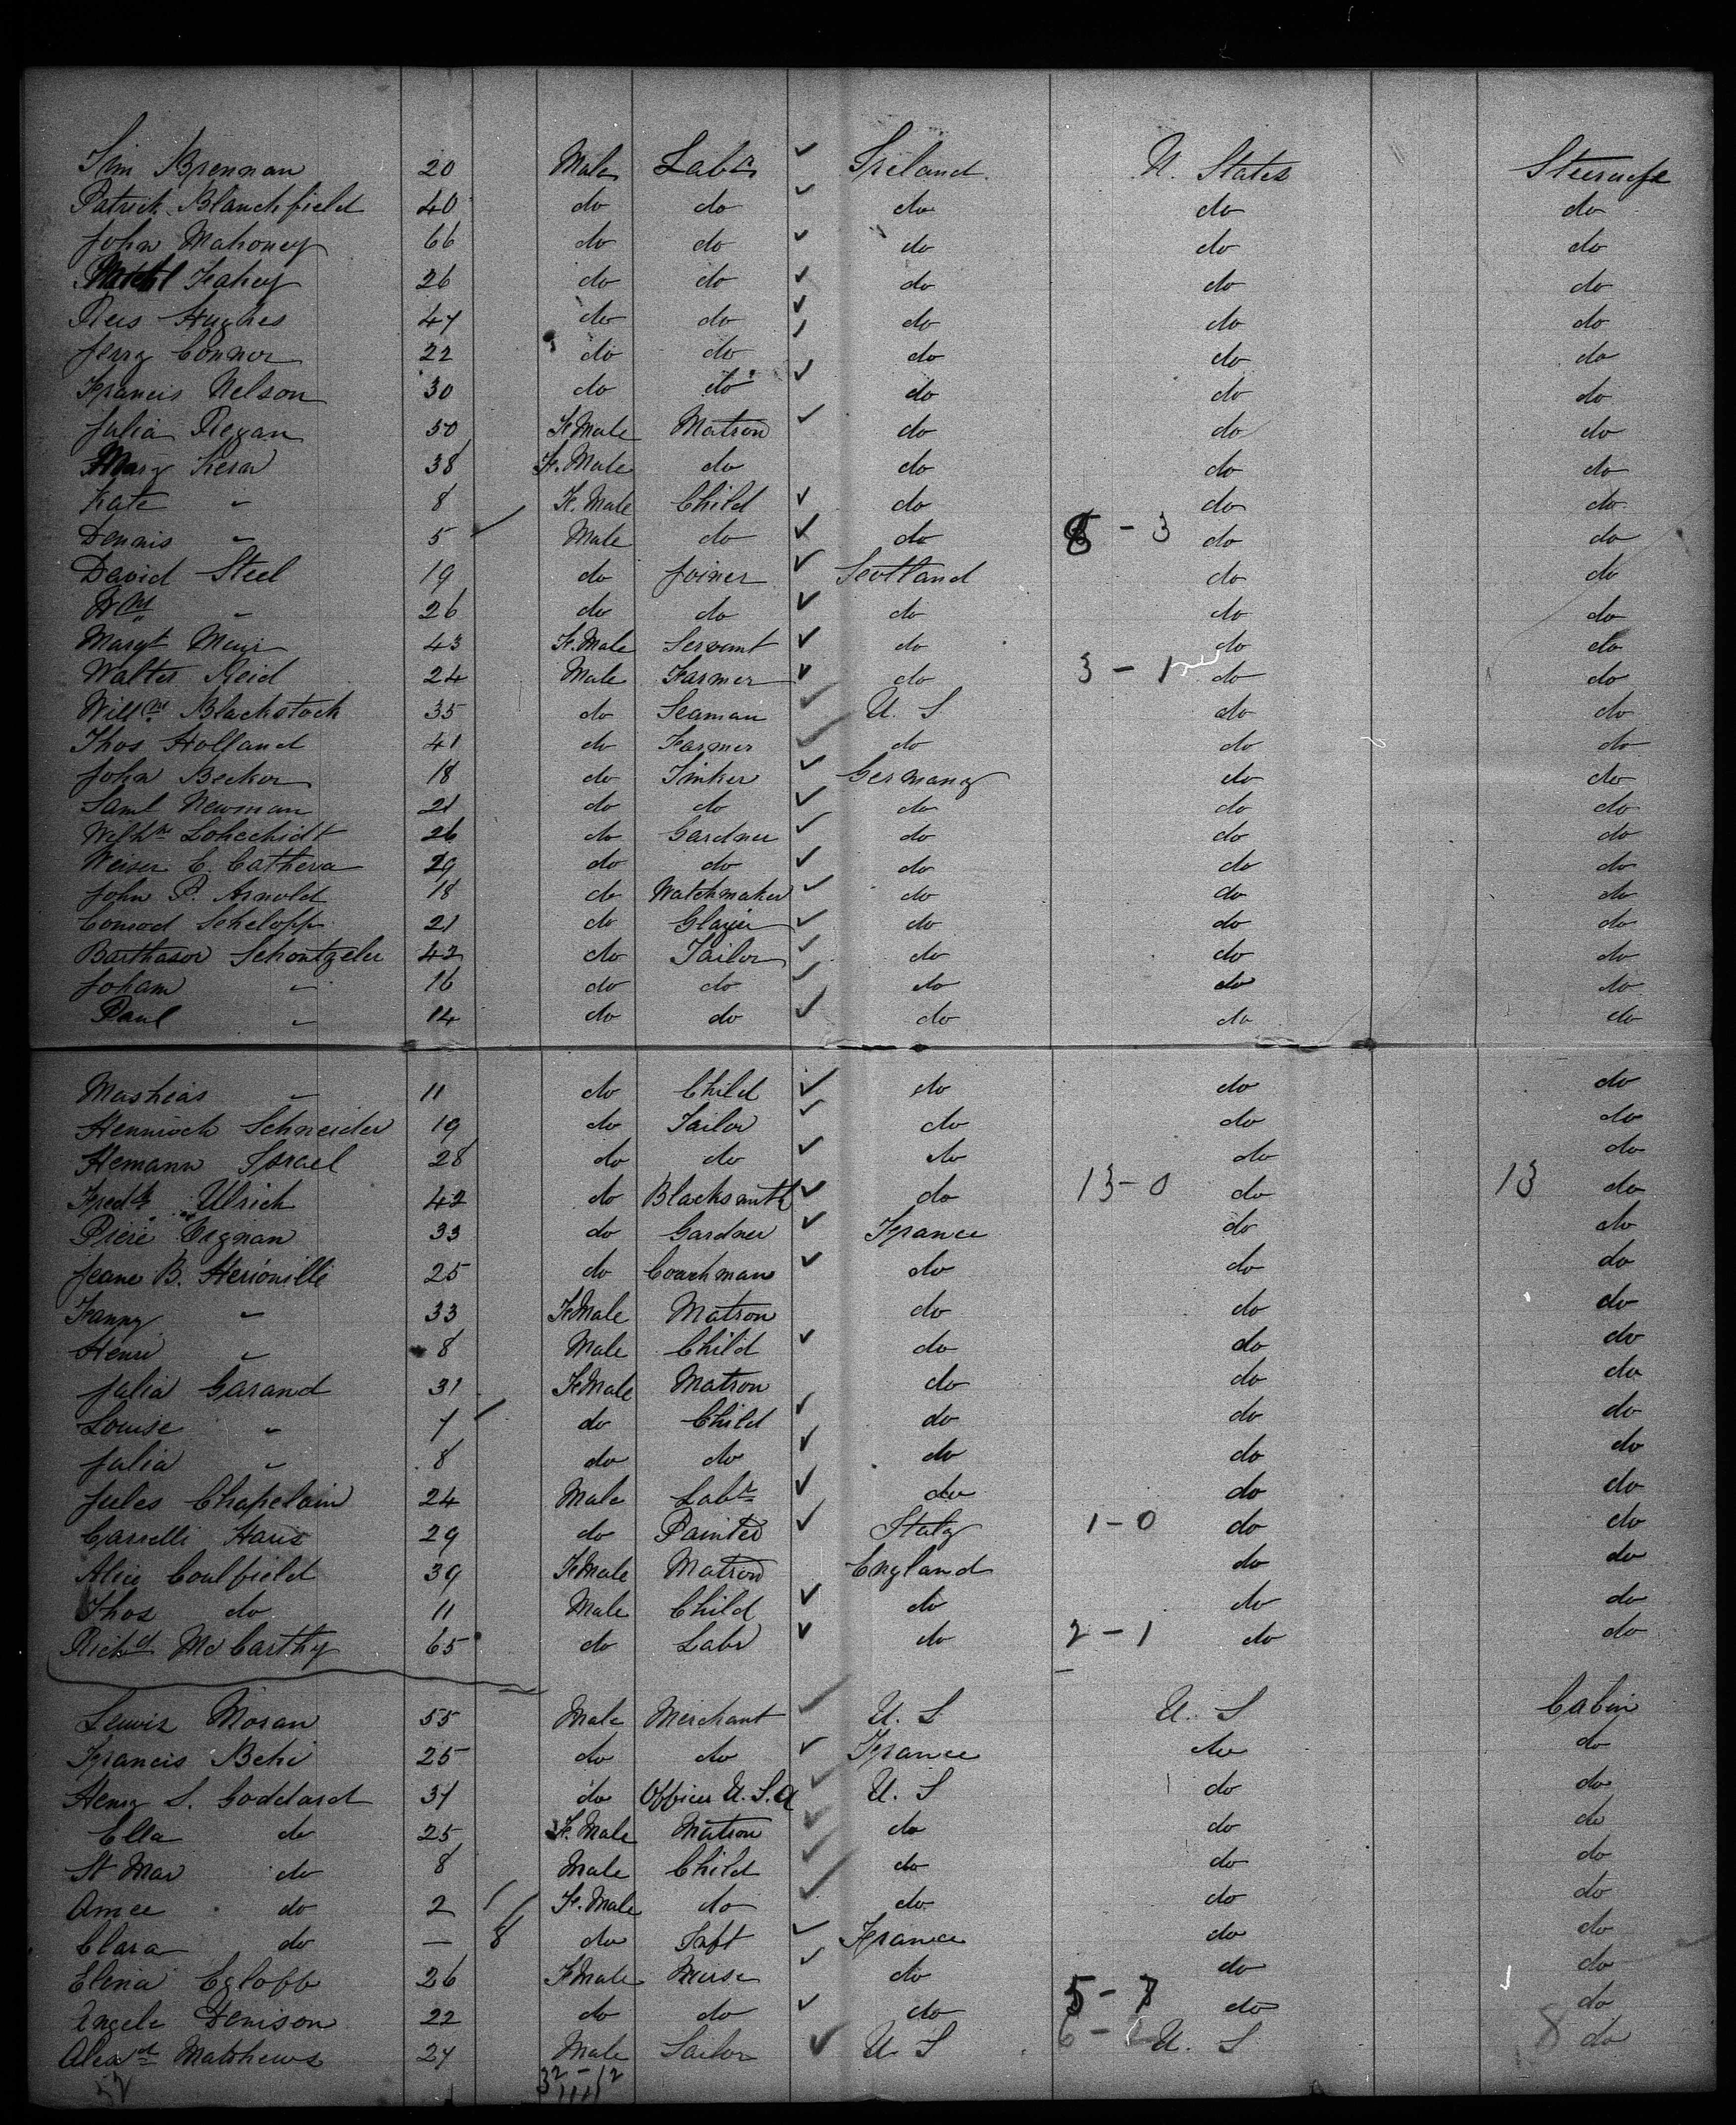 Jim Brennan 20 Male Labr ✓ Ireland U. States Steerage
Patrick Blanchfield 40 do do ✓ do do do
John Mahoney 66 do do ✓ do do do
Fahey 26 do do ✓ do do do
Rees Hughes 47 do do ✓ do do do
Jerry Connor 22 do do ✓ do do do
Francis Nelson 30 do do ✓ do do do
Julia Regan 50 Fe Male Matron ✓ do do do
Mary Kern 38 Fe. Male do do do do
Kate " 8 Fe. Male Child ✓ do do do
Dennis " 5 Male do ✓ do 8 - 3 do do
David Steel 19 do Joiner ✓ Scotland do do
Wm " 26 do do ✓ do do do
Margt Muir 43 Fe. Male Servant ✓ do do do
Walter Reid 24 Male Farmer ✓ do 3 - 1 do do
Willm Blackstock 35 do Seaman ✓ U. S do do
Thos Holland 41 do Farmer ✓ do do do
John Becker 18 do Tinker ✓ Germany do do
Saml Newman 21 do do ✓ do do do
26 do Gardner ✓ do do do
Weiser C. Cathera 29 do do ✓ do do do
John P. Arnold 18 do Watchmaker ✓ do do do
Conrod Schelopp 21 do Glazier ✓ do do do
Barthasor Schontzeler 42 do Tailor ✓ do do do
Joham " 16 do do ✓ do do do
Paul " 14 do do ✓ do do do
Mashias " 11 do Child ✓ do do do
Hennroch Schneider 19 do Tailor ✓ do do do
Hemann Israel 28 do do ✓ do do do
Fredk Ulrich 42 do Blacksmith ✓ do 13 - 0 do 13 do
Piere Eignan 33 do Gardner ✓ France do do
Jeane B. Herionille 25 do Coachman ✓ do do do
Fanny " 33 Fe Male Matron do do do
Henri " 8 Male Child ✓ do do do
Julia Garand 31 Fe Male Matron do do do
Louise " 7 do Child ✓ do do do
Julia " 8 do do ✓ do do do
Jules Chapelain 24 Male Labr ✓ do do do
Garielli Haris 29 do Painter ✓ Italy 1 - 0 do do
Alice Coulfield 39 Fe Male Matron England do do
Thos do 11 Male Child ✓ do do do
Richd McCarthy 65 do Labr ✓ do 2 - 1 do do
Lewis Moran 55 Male Merchant ✓ U. S U. S Cabin
Francis Behi 25 do do ✓ France do do
Henry S. Goddard 37 do Officer U. S. A ✓ U. S do do
Ella do 25 Fe. Male Matron ✓ do do do
St Mar do 8 Male Child ✓ do do do
Amee do 2 Fe. Male do ✓ do do do
Clara do — 8 do Inft ✓ France do do
Elenia Egloff 26 Fe Male Nurse ✓ do do do
Angele Denison 22 do do ✓ do 5 - 7 do do
Alexdr Matthews 27 Male Sailor ✓ U. S 6 - U. S 8 do
52 32 - 12